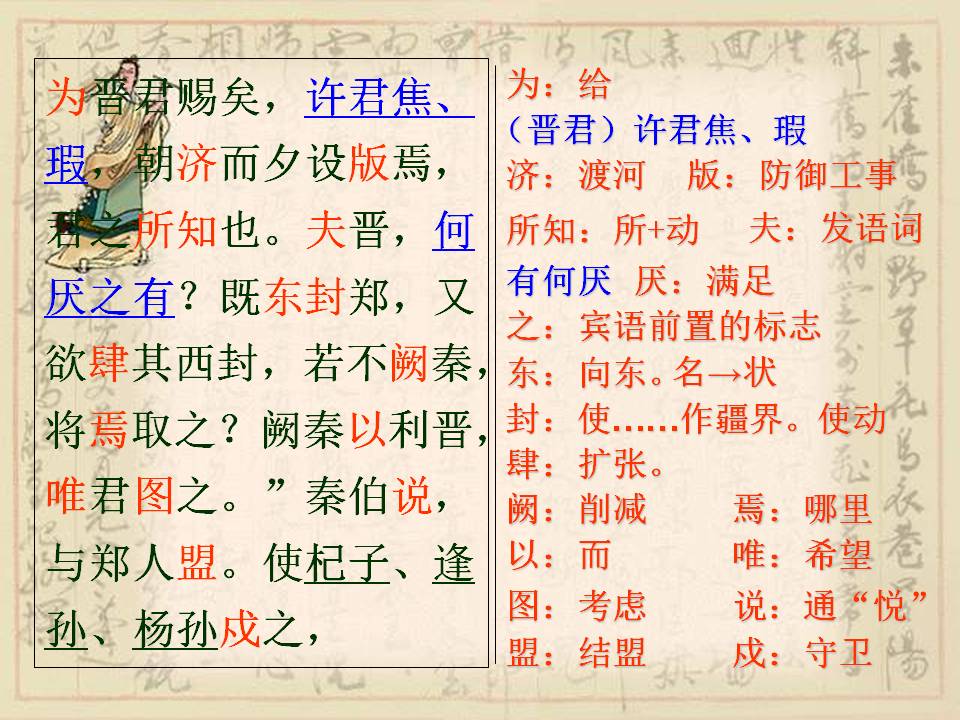 为晋君赐矣，许君焦、
瑕，朝济而夕设版焉，
君之所知也。夫晋，何
厌之有？既东封郑，又
欲肆其西封，若不阙秦，
将焉取之？阙秦以利晋，
唯君图之。”秦伯说，
与郑人盟。使杞子、逢
孙、杨孙戍之，
为：给
（晋君）许君焦、瑕
济：渡河 版：防御工事
所知：所+动 夫：发语词
有何厌 厌：满足
之：宾语前置的标志
东：向东。名→状
封：使……作疆界。使动
肆：扩张。
阙：削减 焉：哪里
以：而 唯：希望
图：考虑 说：通“悦”
盟：结盟 戍：守卫